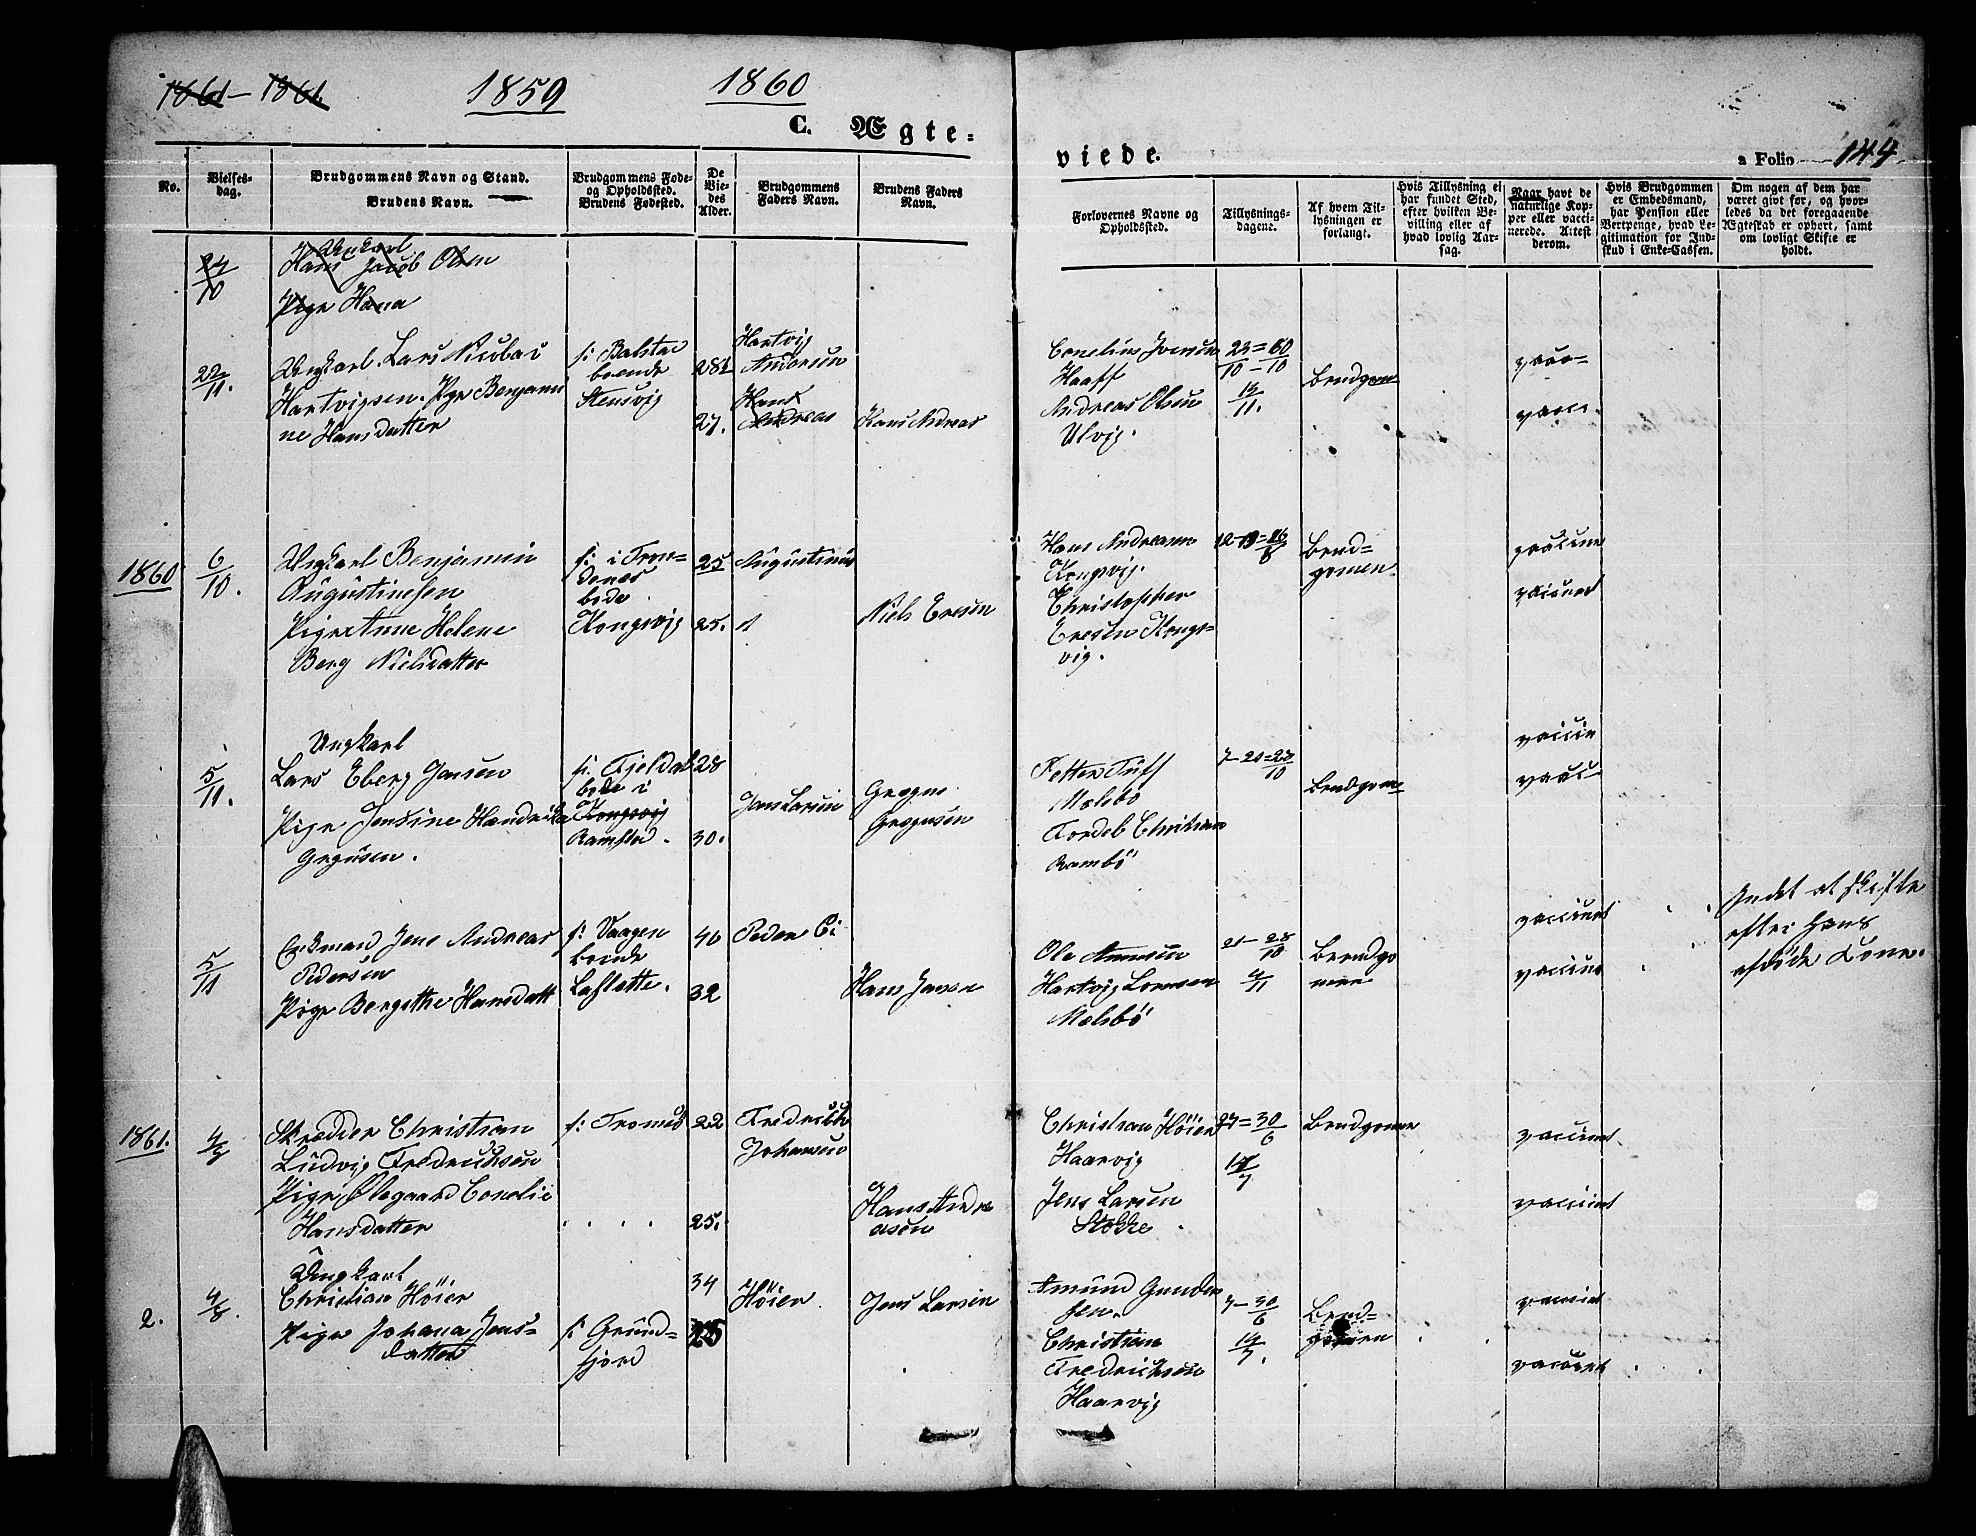 1861 - 1861.
1859
1860
C. Ægte-
viede.
a Folio 144
No.
Vielses-
dag.
Brudgommens Navn og Stand.
Brudens Navn.
Brudgommens Føde-
og Opholdssted.
Brudens Fødested.
De
Vie-
des
Alder.
Brudgommens
Faders Navn.
Brudens Faders
Navn.
Forlovernes Navne og
Opholdssted.
Tillysnings-
dagene.
Af hvem Til-
lysningen er
forlangt.
Hvis Tillysning ei
har fundet Sted,
efter hvilken Be-
villing eller af
hvad lovlig Aar-
sag.
Naar havt de
naturlige Kop-
per eller vacci-
nerede. Attest
derom.
Hvis Brudgommen
er Embedsmand,
har Pension eller
Vertpenge, hvad Le-
gitimation for Ind-
skud i Enke-Cassen.
Om nogen af dem har
været gift før, og hvor-
ledes da det foregaaende
Ægteskab er ophørt, samt
om lovligt Skifte er
holdt.
24/10
Ungkarl
Hans Jacob Olsen
Pige Hana
22/11.
Ungkarl Lars Nicolai
Hartvigsen. Pige Benjamin
ne Hansdatter
f: Balstad
boende
Stensvig
28
27.
Hartvig
Andersen
Hans
Andreas
Hans Andreas
Conelius Iversen
Haaff
Andreas Olsen
Ulvig.
23 = 30
10 - 10
11.
Brudgom
vacc-
vacci.
1860
6/10.
Ungkarl Benjamin
Augustinesen
Pige Anne Helene
Berg Nielsdatter
f: i Tron-
denes
boде
Kongsvig
25
25.
Augustinus
Niels Eresen
Hans Andreasen
Kongsvig.
Christopher
Eresen Kongs-
vig.
Brud-
gomen.
vaccine
vaccinet
5/11.
Ungkarl
Lars Eberg Jansen
Pige Jensine Hendrika
Gregusen.
f: Fjeldal
bode i
Kongsvig
Ramstad.
28
30.
Jan Larsen
Gregus
Gregusen
Petter Tuff
Melsbø
Tordeb Christian
Rambø
7 - 21 = 28/10
Brudgome
vaccin
vacc-
5/11
Enkmand Jens Andreas
Pedersen
Pige Bergitte Hansdatt
f: Vaagen
boende
Laslette.
40
32
Peder
Hans Jansen
Ole Amunsen
Hartvig Lorensen
Melsbø
21 - 28/10
4/11
Brudgo
men
vaccinet
vaccinet
Intet at skifte
efter hans
afdøde Kone.
1861.
4/7
Skredder Christian
Ludvig Fredriksen
Pige Olegaard Conelie
Hansdatter
f: Tromsø
22
25.
Fredrikk
Johansen
Hans Andre
asen
Christian Høier
Haarvig
Jens Larsen
Stokke
27 = 30/6
/7
Brudgomen
vaccinet
vaccinet
2.
4/8.
Ungkarl
Christian Høier
Pige Johana Jens-
datter
f: Grund-
fjord
34
25
Høier.
Jens Larsen
Amund Gunder
sen.
Christian
Fredriksen
Haarvig
7 - 30/6
14/7.
Brud-
gomen
vaccinet
vaccinet